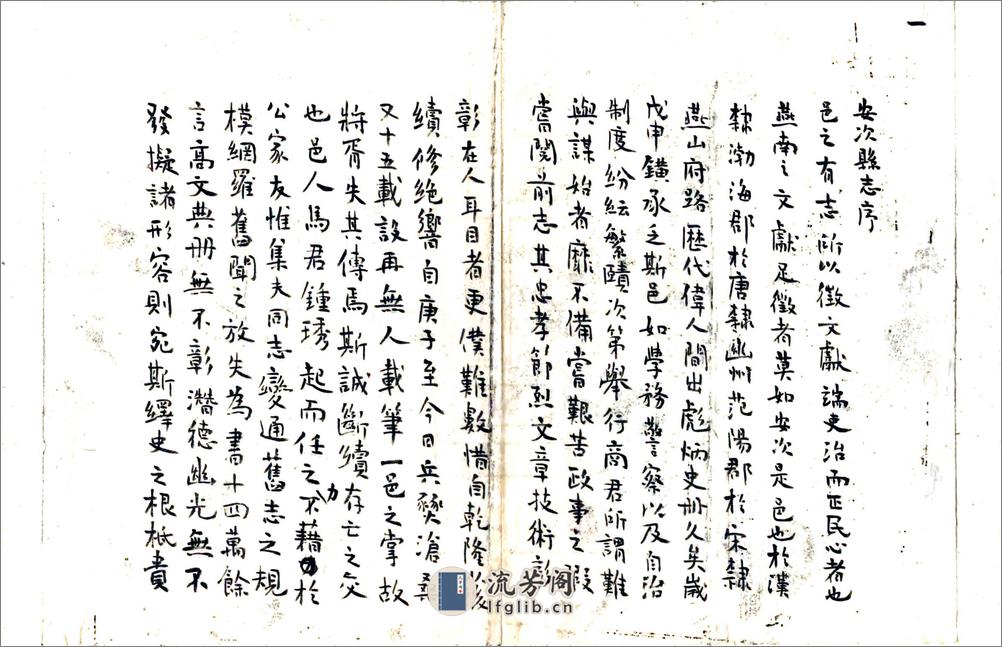 一
安次縣志序
邑之有志所以徵文獻端吏治而正民心者也
燕南之文獻足徵者莫如安次是邑也於漢
隸渤海郡於唐隸幽州范陽郡於宋隸
燕山府路歷代偉人間出彪炳史册久矣歲
戊申鐄承乏斯邑如學務警察以及自治
制度紛紜繁賾次第舉行商君所謂難
與謀始者靡不備嘗艱苦政事之暇
嘗閱前志其忠孝節烈文章技術彰
彰在人耳目者更僕難數惜自乾隆以後
續修絶響自庚子至今日兵燹滄桑
又十五載設再無人載筆一邑之掌故
將胥失其傳焉斯誠斷續存亡之交
也邑人馬君鍾琇起而任之不藉力於
公家友惟集夫同志變通舊志之規
模網羅舊聞之放失為書十四萬餘
言高文典册無不彰潛德幽光無不
發擬諸形容則宛斯繹史之根柢賁
流芳阁
lfglib.cn